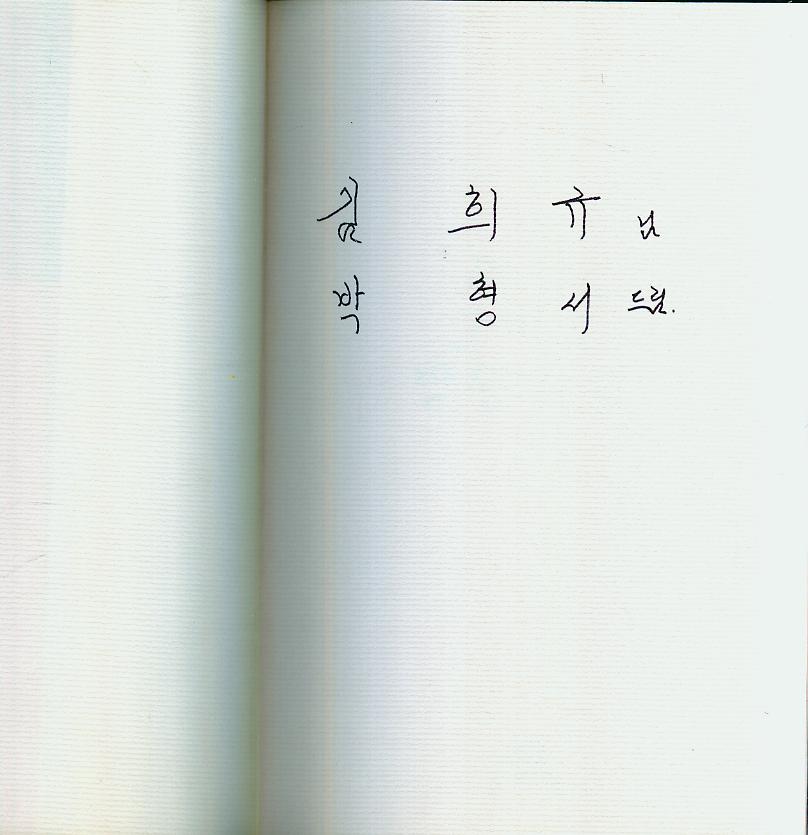 김 희 규 님
박 형 서 드림.